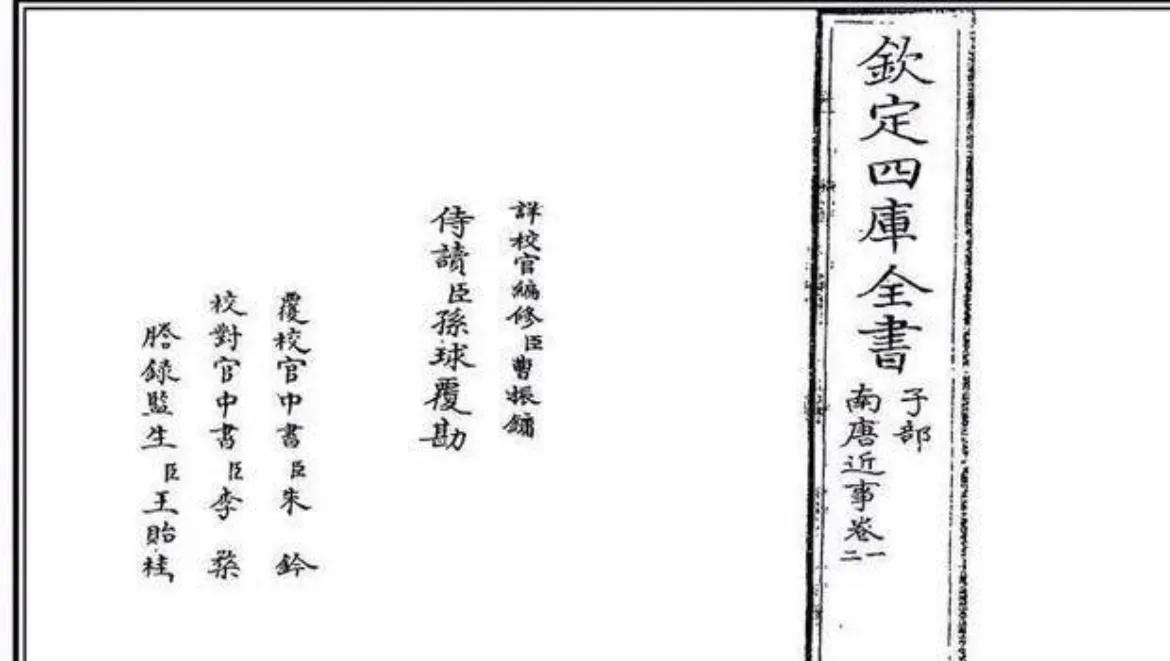 欽定四庫全書
子部
南唐近事卷一二
詳校官編修臣曹振鏞
侍讀臣孫球覆勘
覆校官中書臣朱鈐
校對官中書臣李
謄錄監生臣王貽桂